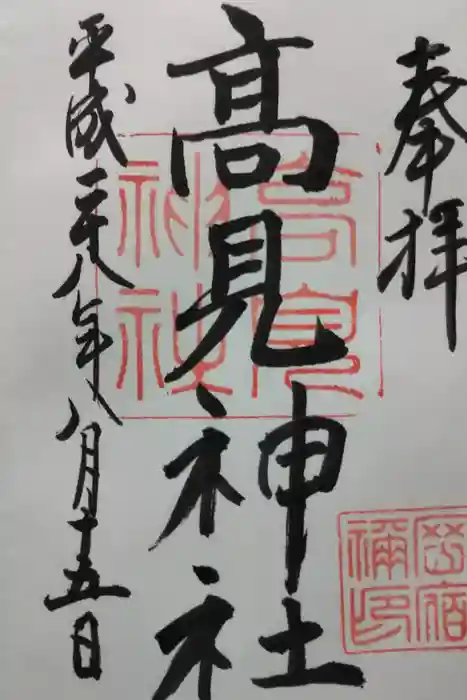 奉拝
高見神社
平成二十八年八月十五日
高見神社